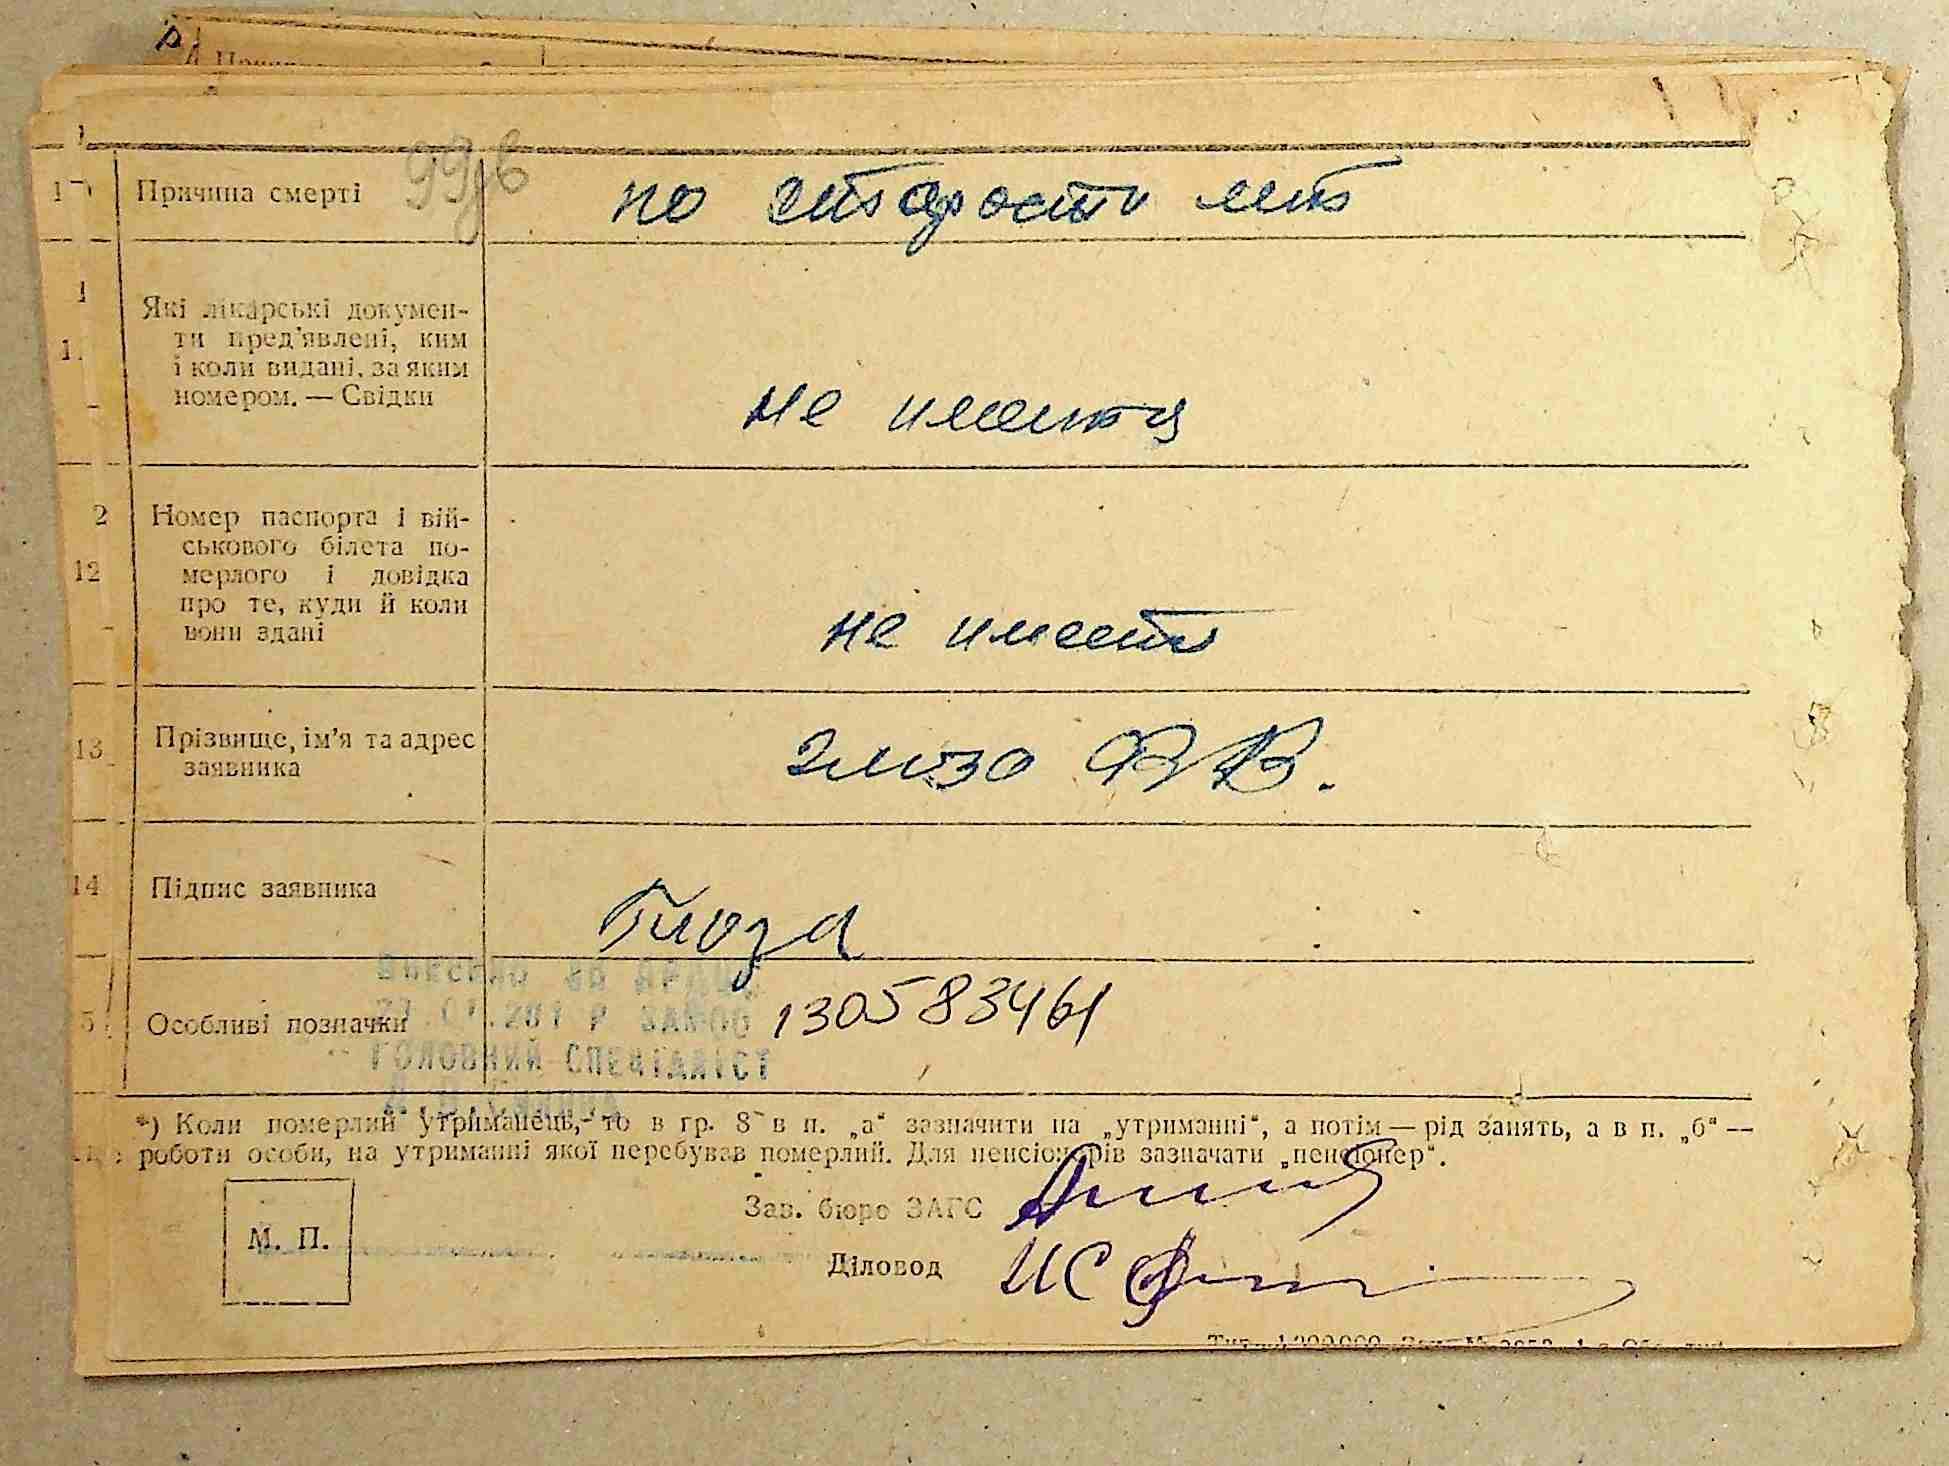 99зв
Причина смерті по старости лет
Які лікарські докумен-
ти пред'явлені, ким
і коли видані, за яким
номером. — Свідки
не имеится
2 Номер паспорта і вій-
ськового білета по-
12 мерлого і довідка
про те, куди й коли
вони здані
не имеет
13 Прізвище, ім'я та адрес
заявника
14 Підпис заявника
Особливі позначки 130583461
ГОЛОВНИЙ СПЕЦІАЛІСТ
*) Коли померлий утриманець, то в гр. 8 в п. „а“ зазначити на „утриманні“, а потім — рід занять, а в п. „б“ —
роботи особи, на утриманні якої перебував померлий. Для пенсіонерів зазначати „пенсіонер“.
Зав. бюро ЗАГС
М. П.
Діловод